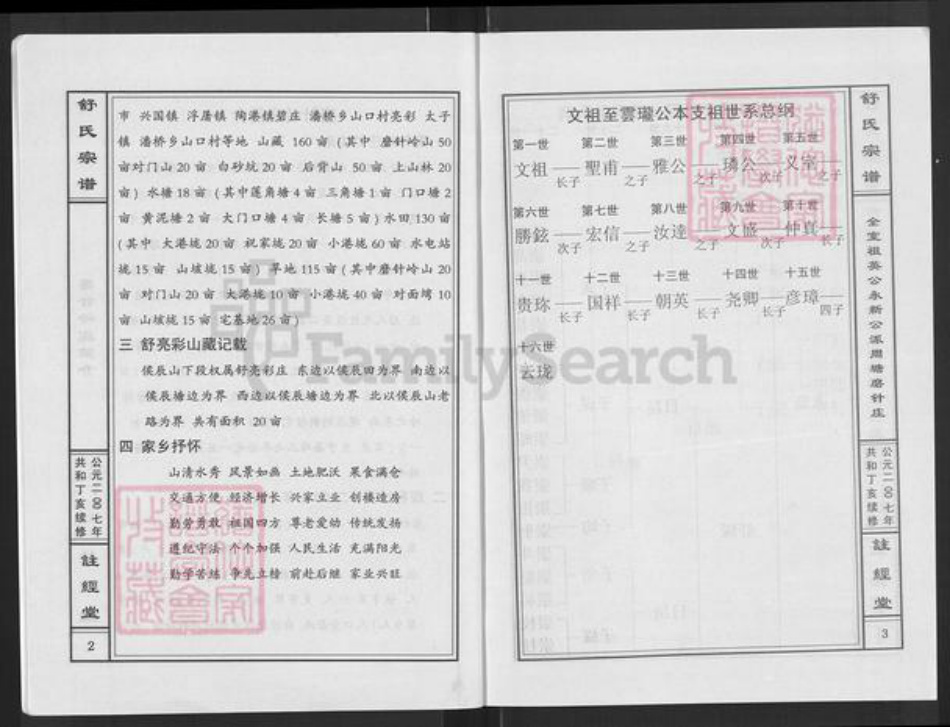 舒氏宗谱
市 兴国镇 浮屠镇 陶港镇碧庄 潘桥乡山口村亮彩 太子
镇 潘桥乡山口村等地 山藏 160 亩 (其中 磨针岭山 50
亩对门山 20 亩 白砂坑 20 亩 后背山 50 亩 上山林 20
亩) 水塘 18 亩 (其中莲角塘 4 亩 三角塘 1 亩 门口塘 2
亩 黄泥塘 2 亩 大门口塘 4 亩 长塘 5 亩) 水田 130 亩
(其中 大港垅 20 亩 祝家垅 20 亩 小港垅 60 亩 水电站
垅 15 亩 山坡垅 15 亩) 旱地 115 亩 (其中磨针岭山 20
亩 对门山 20 亩 大港垅 10 亩 小港垅 40 亩 对面塆 10
亩 山坡垅 15 亩 宅基地 26 亩)
三 舒亮彩山藏记载
侯辰山下段权属舒亮彩庄 东边以侯辰田为界 南边以
侯辰塘边为界 西边以侯辰塘边为界 北以侯辰山老
路为界 共有面积 20 亩
四 家乡抒怀
山清水秀 风景如画 土地肥沃 果食满仓
交通方便 经济增长 兴家立业 创楼造房
勤劳勇敢 祖国四方 尊老爱幼 传统发扬
遵纪守法 个个加强 人民生活 充满阳光
勤学苦练 争先立榜 前赴后继 家业兴旺
公元二00七年
共和丁亥续修
註經堂
2
文祖至雲瓏公本支祖世系总纲
第一世 第二世 第三世 第四世 第五世
文祖 聖甫 雅公 璘公 义宰
长子 之子 之子 次子 之子
第六世 第七世 第八世 第九世 第十世
勝鉉 宏信 汝達 文盛 仲真
次子 之子 之子 次子 长子
十一世 十二世 十三世 十四世 十五世
贵珎 国祥 朝英 尧卿 彦璋
长子 长子 长子 长子 四子
十六世
云珑
舒氏宗谱
全宝祖英公永新公派周塘磨针庄
公元二00七年
共和丁亥续修
註經堂
3
FamilySearch